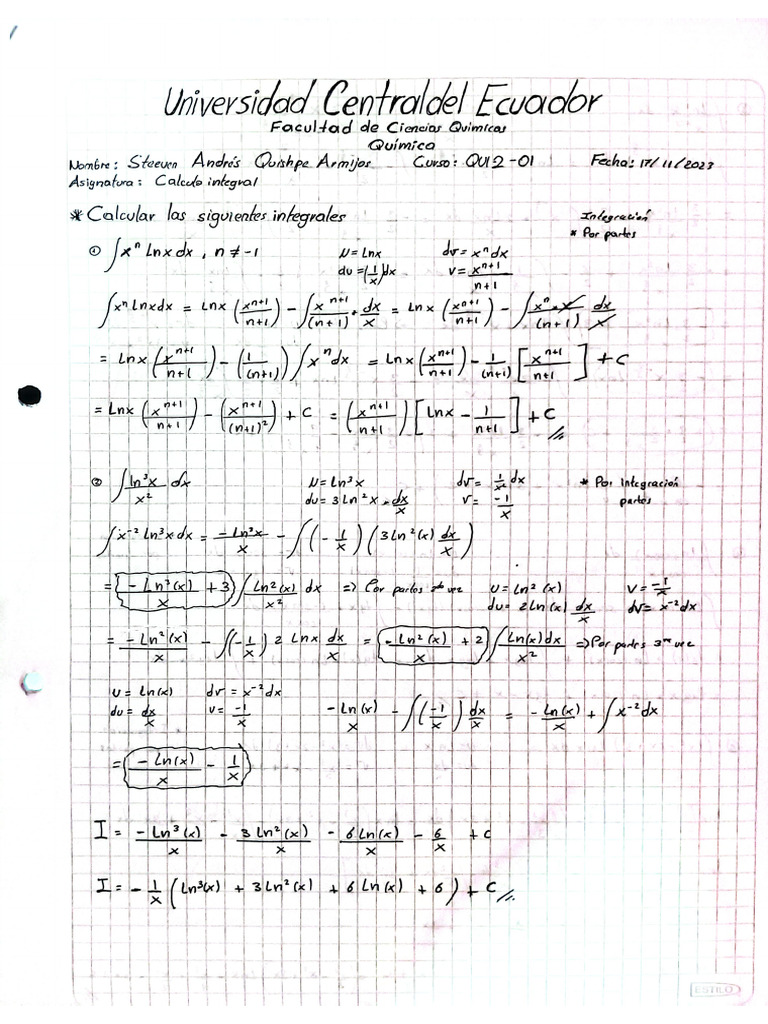 Universidad Central del Ecuador
Facultad de Ciencias Químicas
Química
Nombre: Steeven Andrés Quishpe Armijos Curso: QUI2-01 Fecha: 17/11/2023
Asignatura: Calculo integral
* Calcular las siguientes integrales Integración
* Por partes
① ∫xⁿ Lnx dx, n ≠ -1 u = Lnx dv = xⁿdx
du = (1/x)dx v = xⁿ⁺¹/n+1
∫xⁿ Lnxdx = Lnx (xⁿ⁺¹/n+1) - ∫xⁿ⁺¹/(n+1) · dx/x = Lnx (xⁿ⁺¹/n+1) - ∫xⁿ·x/(n+1) dx/x
= Lnx (xⁿ⁺¹/n+1) - (1/(n+1)) ∫xⁿdx = Lnx (xⁿ⁺¹/n+1) - 1/(n+1) [xⁿ⁺¹/n+1] + C
= Lnx (xⁿ⁺¹/n+1) - (xⁿ⁺¹/(n+1)²) + C = (xⁿ⁺¹/n+1) [Lnx - 1/n+1] + C //
② ∫ln³x/x² dx u = Ln³x dv = 1/x² dx * Por Integración
du = 3Ln²x · dx/x v = -1/x partes
∫x⁻² Ln³x dx = -Ln³x/x - ∫(-1/x)(3Ln²(x) dx/x)
= -Ln³(x)/x + 3 ∫Ln²(x)/x² dx => Por partes 2da vez u = Ln²(x) v = -1/x
du = 2Ln(x) dx/x dv = x⁻²dx
= -Ln²(x)/x - ∫(-1/x) 2 Lnx dx/x = -Ln²(x)/x + 2 ∫Ln(x)dx/x² => Por partes 3ra vez
u = Ln(x) dv = x⁻²dx
du = dx/x v = -1/x -Ln(x)/x - ∫(-1/x) dx/x = -Ln(x)/x + ∫x⁻²dx
= -Ln(x)/x - 1/x
I = -Ln³(x)/x - 3Ln²(x)/x - 6Ln(x)/x - 6/x + C
I = -1/x (Ln³(x) + 3Ln²(x) + 6Ln(x) + 6) + C //
ESTILO